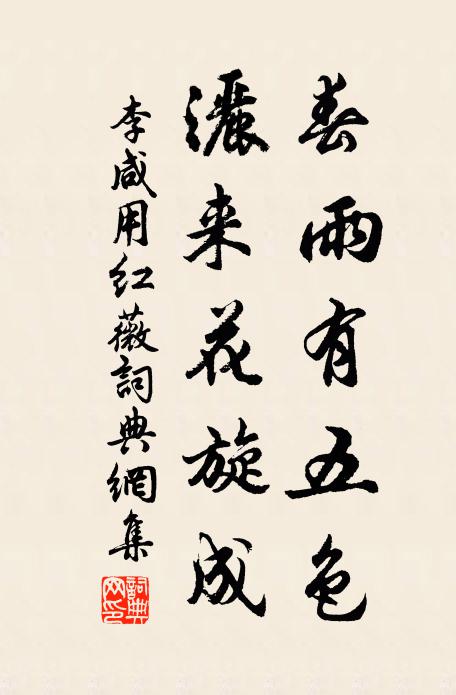 春雨有五色
灑来花旋成
李咸用红薇詞典網集
詞典网印